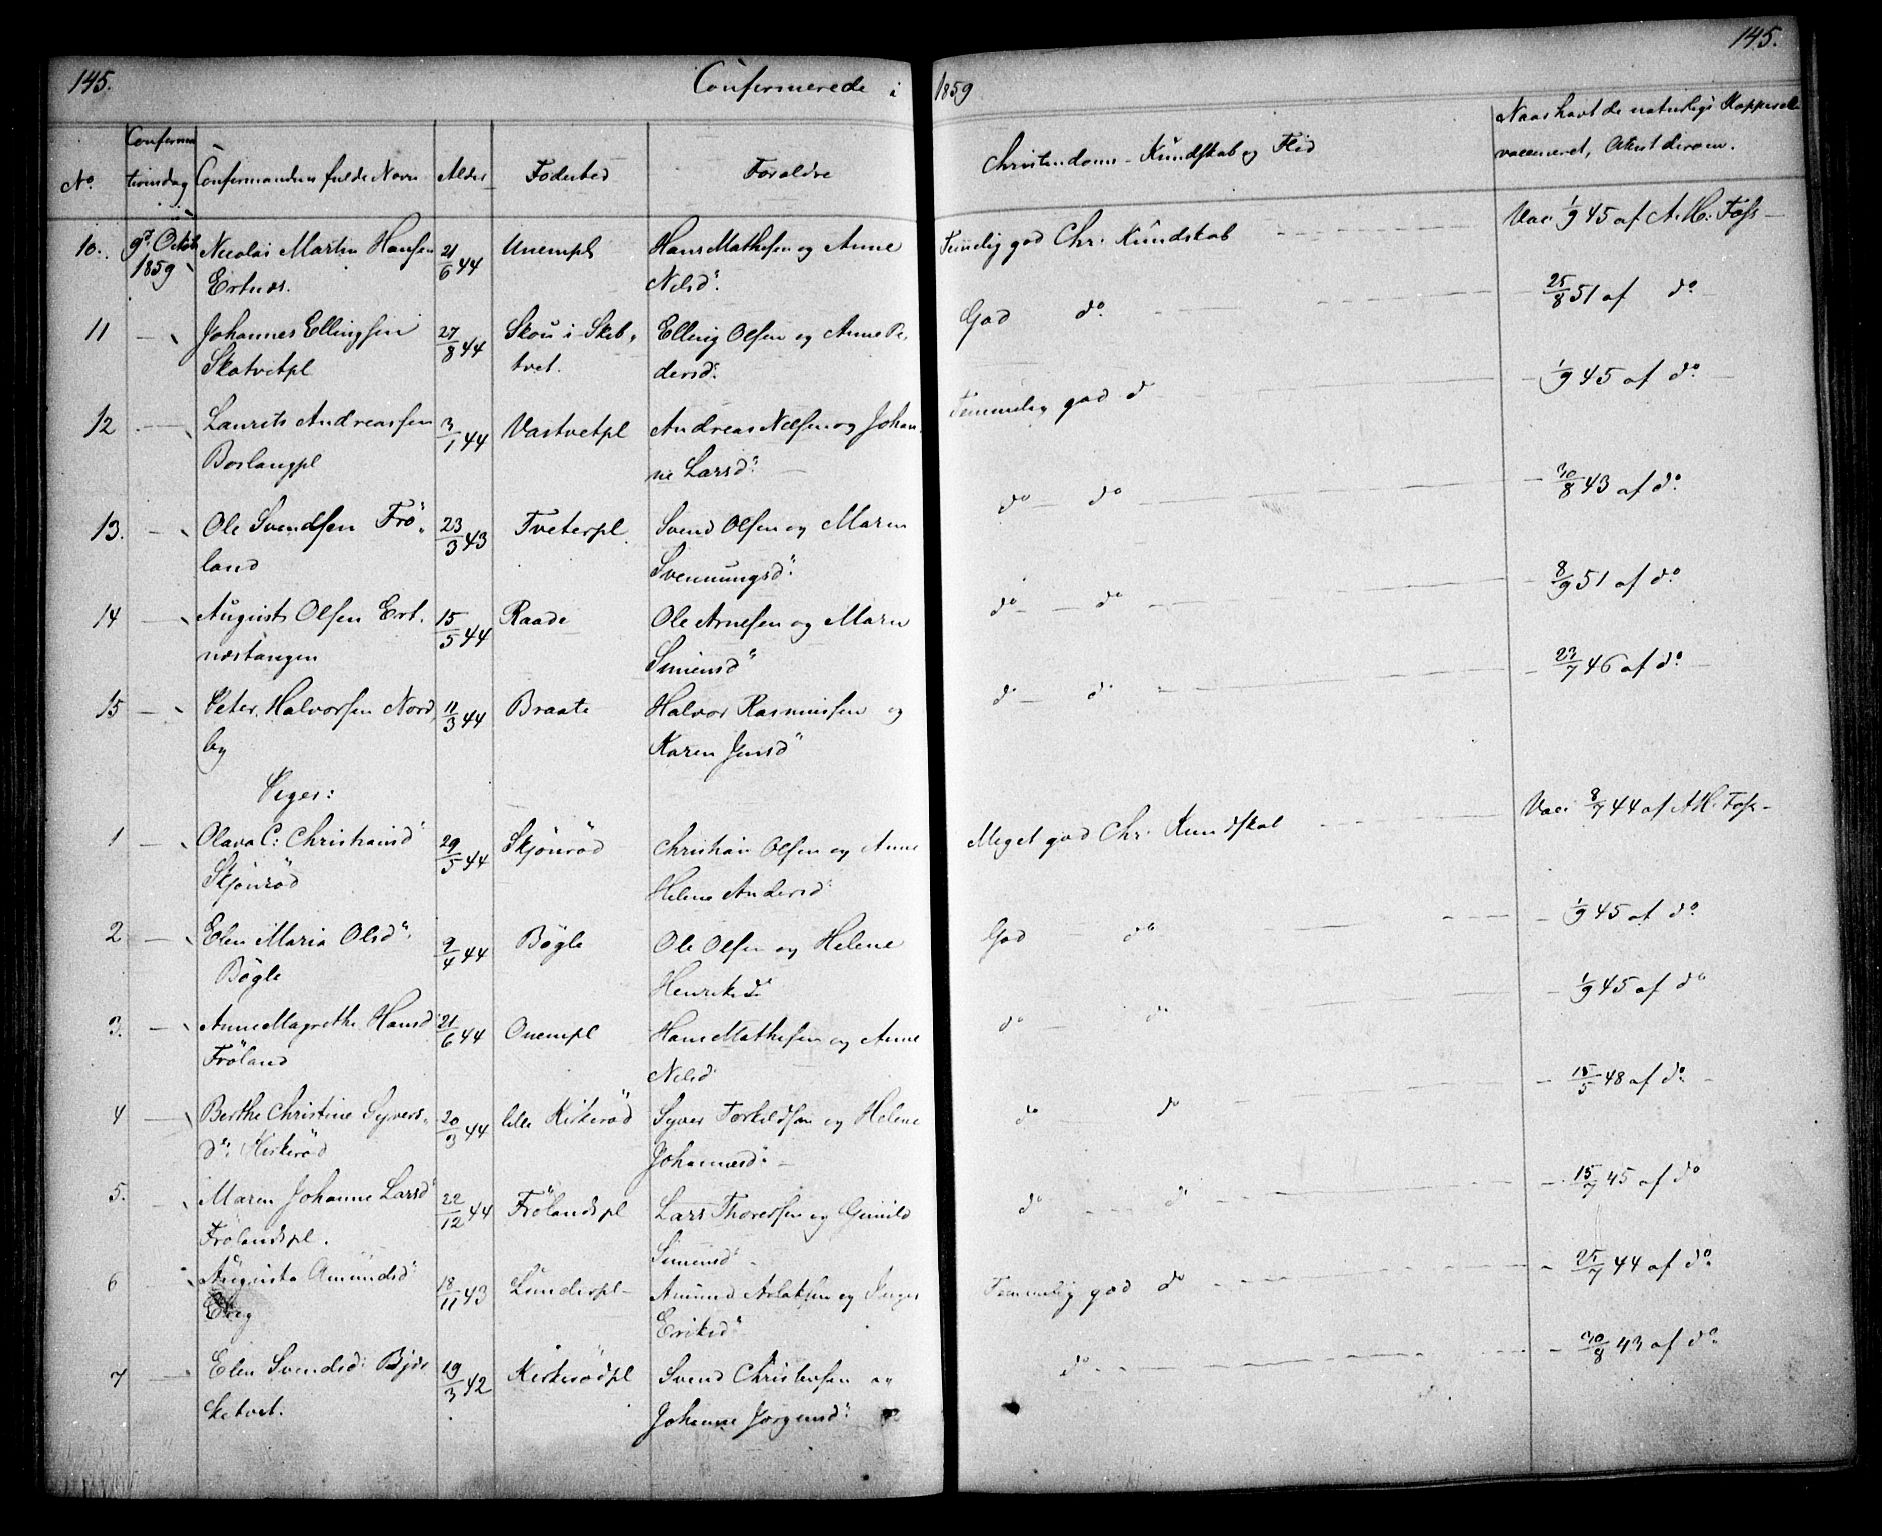 145. Confermerede i 1859 145.
No. Conferma tionsdag Confermandens fulde Navn Alder Födested Foraldre Christendoms-Kundskab og Flid Naar havt de naturlige Kopper ell vaccineret, Attest derom.
10. 9de Octob 1859 Nicolai Martin Hansen 21/6 44 Unempl Hans Mathisen og Anne Temelig god Chr. Kundskab Vac. 1/9 45 af A. H. Foss
Ertnæs. Nilsd.
11 Johannes Ellingsen 27/8 44 Skou i Skib- Elling Olsen og Anne Pe- God do 25/8 51 af do
Skatvetpl tvet. dersd.
12 Laurits Andreassen 3/1 44 Vastvetpl Andreas Nilsen og Johan- Temmelig god do 1/9 45 af do
Boslangpl ne Larsd.
13. Ole Svendsen Frö- 23/3 43 Tveterpl Svend Olsen og Maren do do 30/8 43 af do
land Svennungsd.
14 August Olsen Ert- 15/5 44 Raade Ole Arnesen og Maren do do 8/9 51 af do
næstangen Simensd
15 Peter Halvorsen Nord 11/3 44 Braate Halvor Rasmussen og do do 23/7 46 af do
by Karen Jensd
Piger:
1 Olava C: Christiansd 29/5 44 Skjönröd Christian Olsen og Anne Meget god Chr. Kundskab Vac. 8/7 44 af A H. Foss
Skjönröd Helene Andersd.
2 Elen Maria Olsd. 9/4 44 Bögle Ole Olsen og Helene God do 1/9 45 af do
Bögle Henriksd
3. Anne Magrethe Hansd 21/6 44 Onempl Hans Mathisen og Anne do do 1/9 45 af do
Fröland Nilsd
4 Berthe Christine Syvers- 20/3 44 lille Kirkeröd Syver Torkildsen og Helene do do 15/5 48 af do
d. Kirkeröd Johannesd.
5. Maren Johanne Larsd 22/12 44 Frölandspl Lars Thoresen og Gunild do do 15/7 45 af do
Frölandspl. Simensd
6 Augusta Amundsd 18/11 43 Lunderpl Amund Aslaksen og Inger Temmelig god do 25/7 44 af do
Eriksd
7 Elen Svendsd. 19/3 42 Kirkerödpl Svend Christensen og do 30/8 43 af do
Sketvet. Johanne Jörgensd.